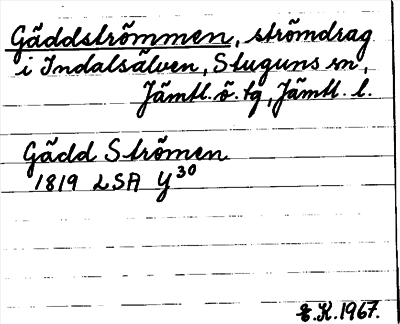 Gäddströmmen, strömdrag
i Indalsälven, Stuguns sn,
Jämtl. ö. tg, Jämtl. l.
Gädd Strömen
1819 LSA Y30
E.K. 1967.